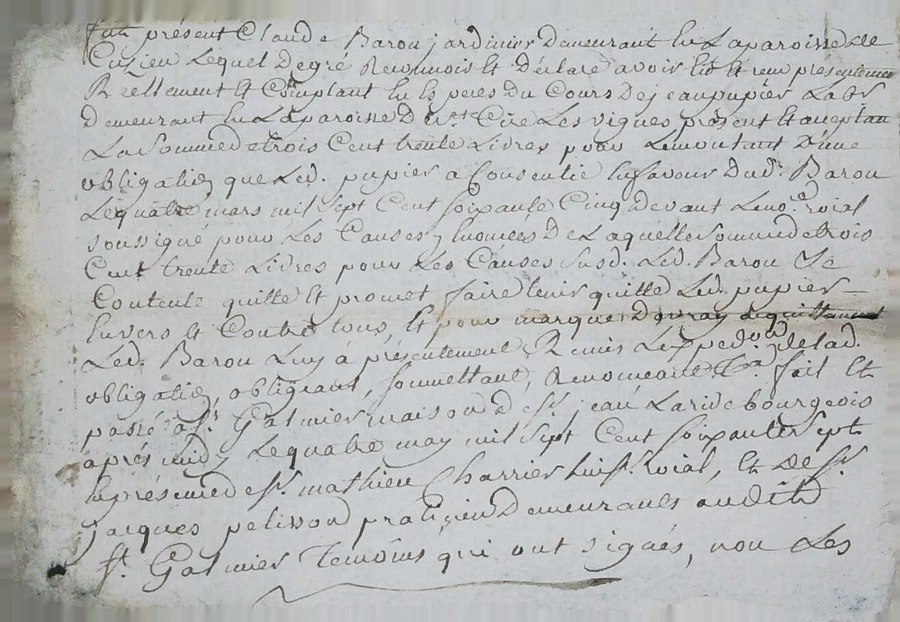 fut présent Claude Barou jardinier demeurant en La paroisse de
Cuzieu Lequel de gré Reconnois et déclare avoir et reçu présentement
Réellement et Comptant en espéces du Cours de jean pupier
demeurant en La paroisse de st Cire Les vignes présent et acceptant
La Somme de trois Cent trente Livres pour Le montant dune
obligation que Led. pupier a Consentie en faveur dud. Barou
Le quatre mars mil Sept Cent Soixante Cinq devant Le no.re roial
soussigné pour Les Causes y enoncées De Laquelle Somme de trois
Cent trente Livres pour Les Causes Susd. Led. Barou Se
Contente quitte et promet faire tenir quitte Led. pupier
Envers et Contre tous, et pour marque de vray acquittement
Led. Barou Luy à présentement Remis de lad.
obligation, obligeant, Soumettant, Renonceant &a fait et
passé a st. Galmier maison de sr. jean Larive bourgeois
aprés midy Le quatre may mil Sept Cent Soixante Sept
En présence de sr. mathieu Charrier huisr. roial, et de sr.
jacques pelisson praticien demeurants audit
st. Galmier Temoins qui ont signés, non Les